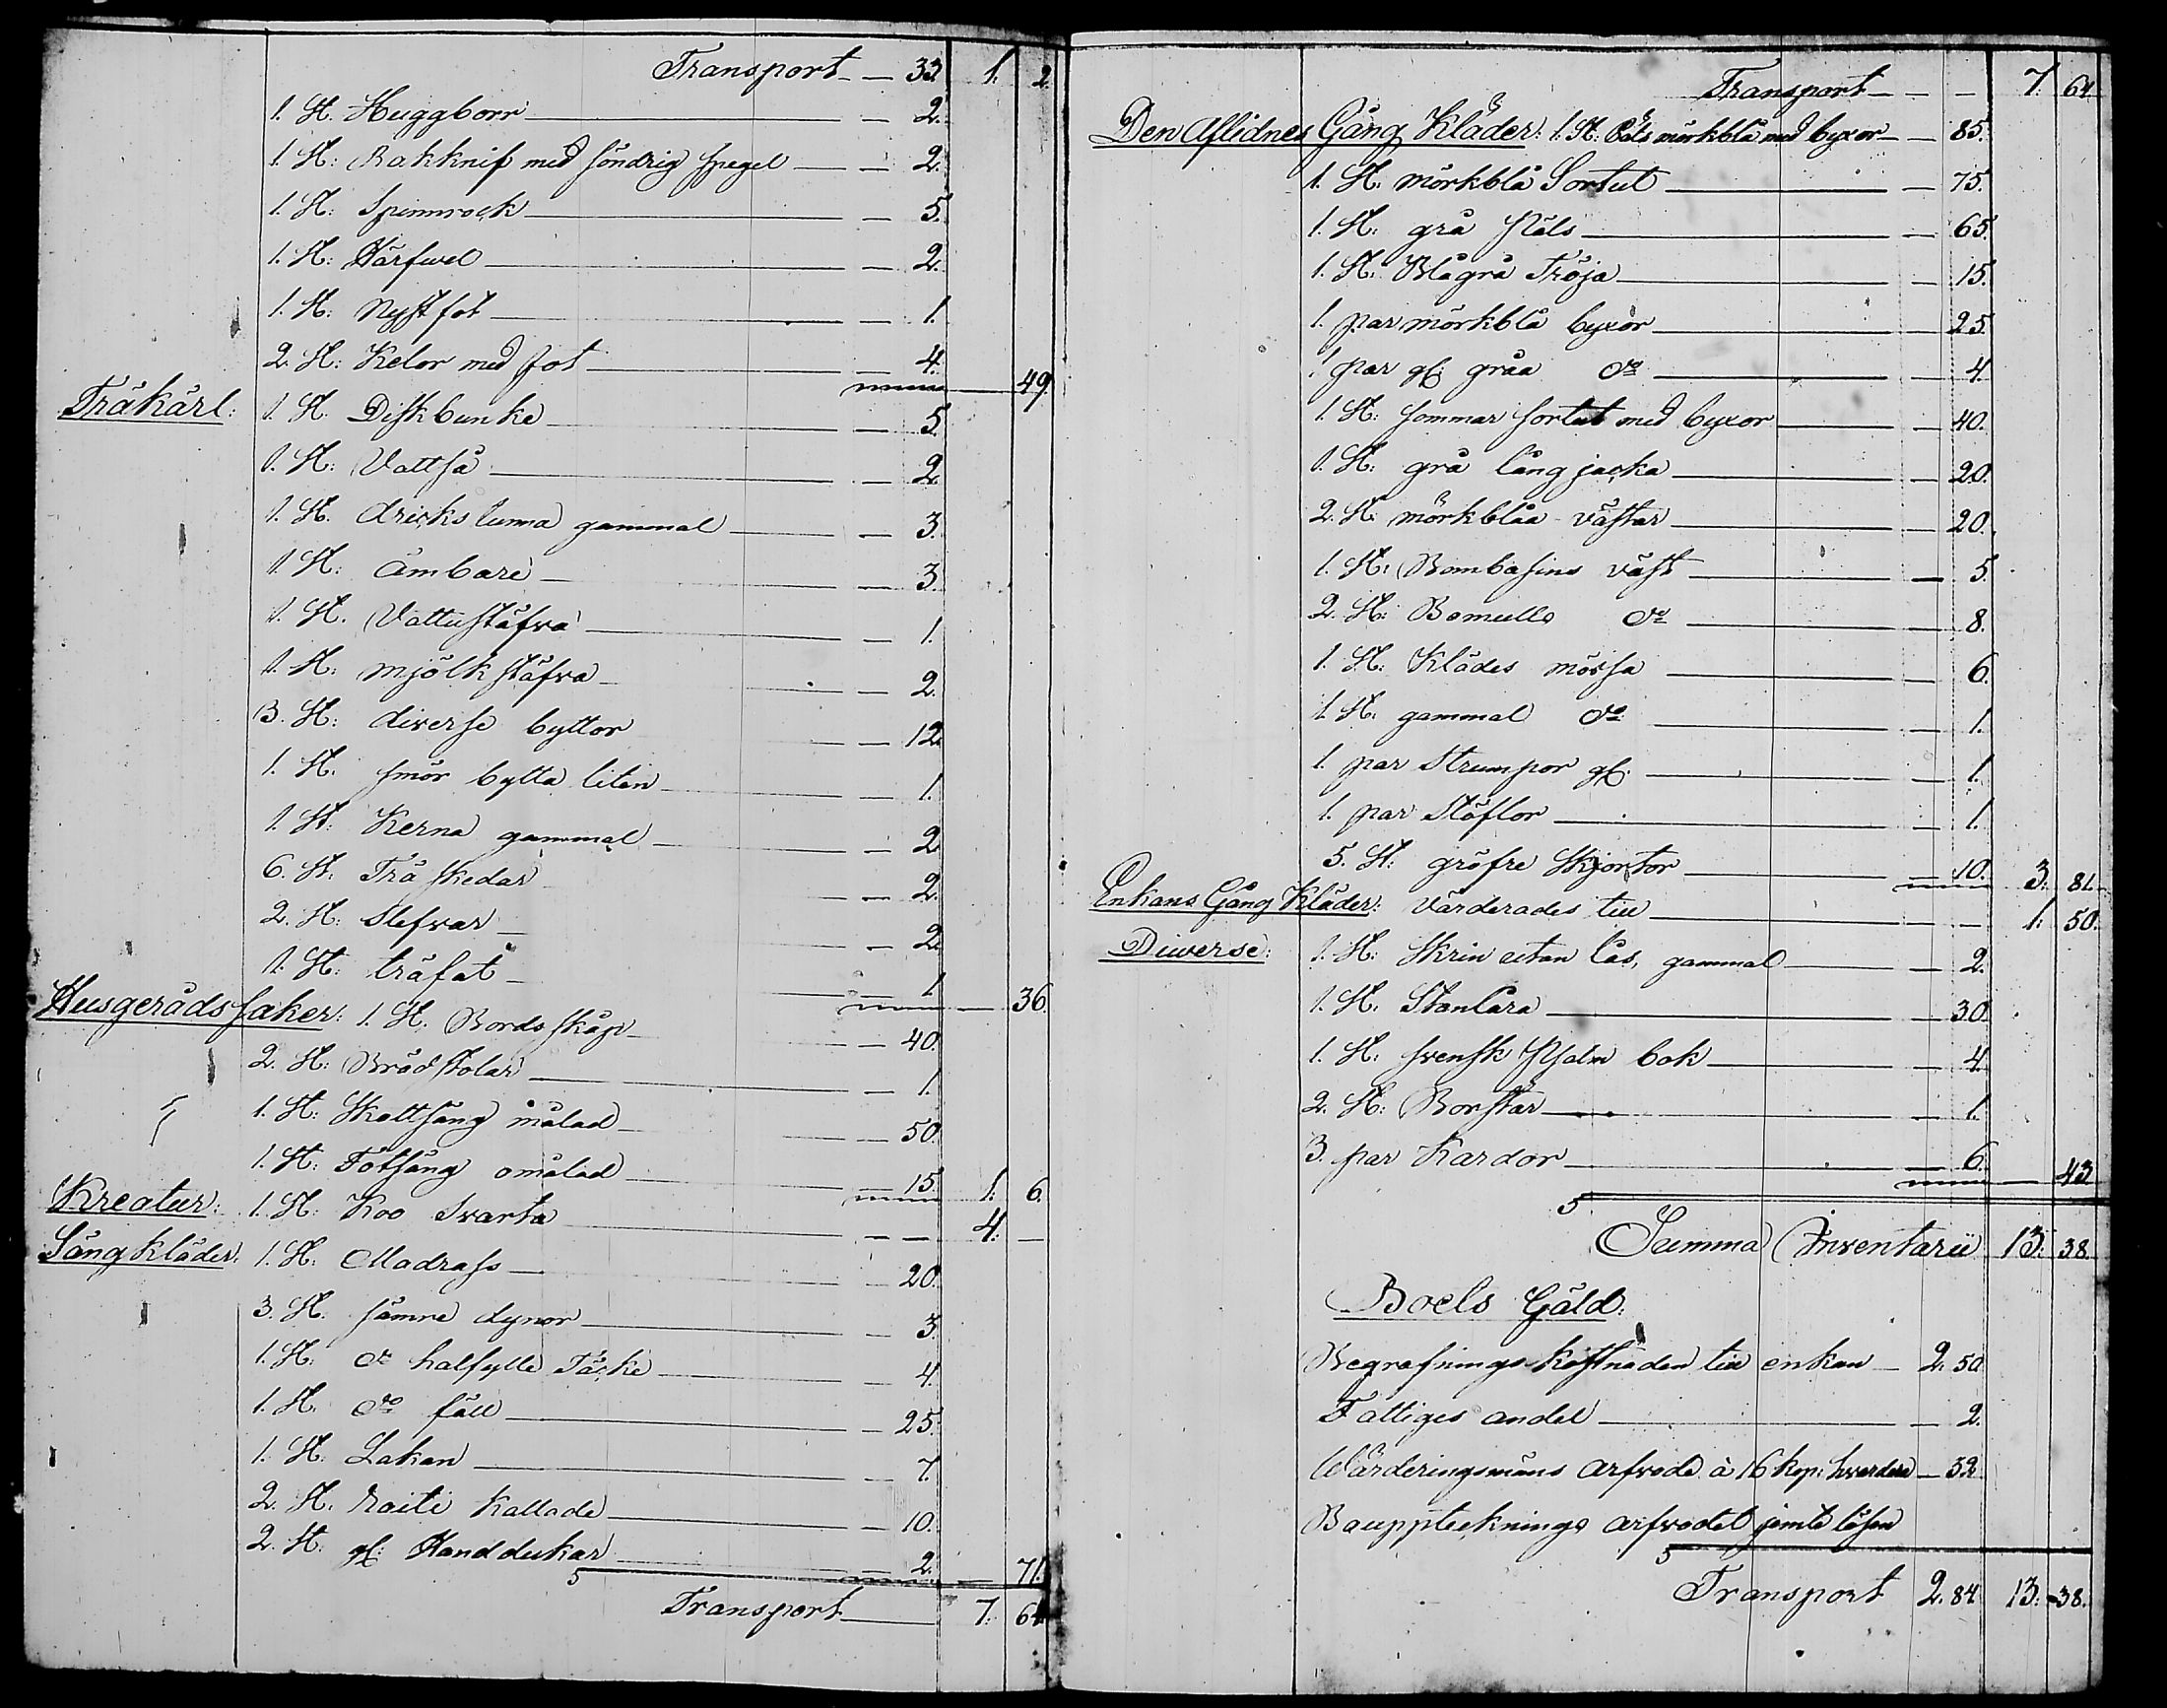 Transport — 33 1. 2
1. St. Huggborr — 2.
1. St: Rakknif med söndrig spegel — 2.
1. St: Spinnrock — 5.
1. St: Härfwel — 2.
1. St: Nystfot — 1.
2. St: Kelor med fot — 4. — 49.
Träkärl: 1. St. Diskbunke — 5.
1. St: Vattså — 2.
1. St. drickstunna gammal — 3.
1. St: Ämbare — 3.
1. St. Vattustäfva — 1.
1. St: mjölkstäfva — 2.
3. St: diverse byttor — 12.
1. St. smör bytta liten — 1.
1. St: Kerna gammal — 2.
6. St: Träskedar — 2.
2. St: Slefvar — 2.
1. St: träfat — 1 — 36.
Husgerådssaker: 1. St. Bordsskåp — 40.
2. St: Brädstolar — 1.
1. St: Skottsäng målad — 50.
1. St: Tötsäng omålad — 15. 1. 6.
Kreatur: 1. St: Koo Svarta — 4. —
Sängkläder: 1. St: Madrass — 20.
3. St. sämre dynor — 3.
1. St: do halfylle Täcke — 4.
1. St. do fäll — 25.
1. St. Lakan — 7.
2. St. Raiti kallade — 10.
2. St: gl: Handdukar — 2. — 71.
Transport — 7. 64
Transport — 7. 64
Den Aflidnes Gång Kläder: 1. St: Päls mörkblå med byxor — 85.
1. St. mörkblå Sortut — 75.
1. St: grå Päls — 65.
1. St: Blågrå Tröja — 15.
1. par mörkblå byxor — 25.
1 par gl: gråa do — 4.
1. St: sommar sortut med byxor — 40.
1. St: grå långjacka — 20.
2. St: mörkblåa västar — 20.
1. St: Bombasins väst — 5.
2. St: Bomulls do — 8.
1. St: Klädes mössa — 6.
1. St. gammal do — 1.
1. par Strumpor gl: — 1.
1. par Stöflor — 1.
5. St: gröfre Skjortor — 10. 3. 81.
Enkans Gång Kläder: värderades till — 1. 50.
Diverse: 1. St: Skrin utan lås, gammal — 2.
1. St. Stånlära — 30.
1. St. svensk Psalm bok — 4.
2. St: Borstar — 1.
3. par Kardor — 6. — 43
Summa Inventarii 13. 38.
Boets Gäld:
Begrafnings kostnaden till enkan — 2. 50
Fattiges andel — 2.
Wärderingsmäns arfvode à 16 kop: hvardera — 32
Bouppteknings arfvodet jemte lösen
Transport 2. 84 13. 38.